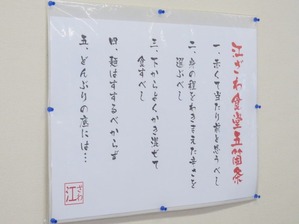 はざわ食堂五箇条
一、赤くて当たり前と思うべし
二、炎の種とわきまえた辛さを
選ぶべし
三、下からよくかき混ぜて
食すべし
四、麺はすするべからず
五、どんぶりの底には…
江ざわ